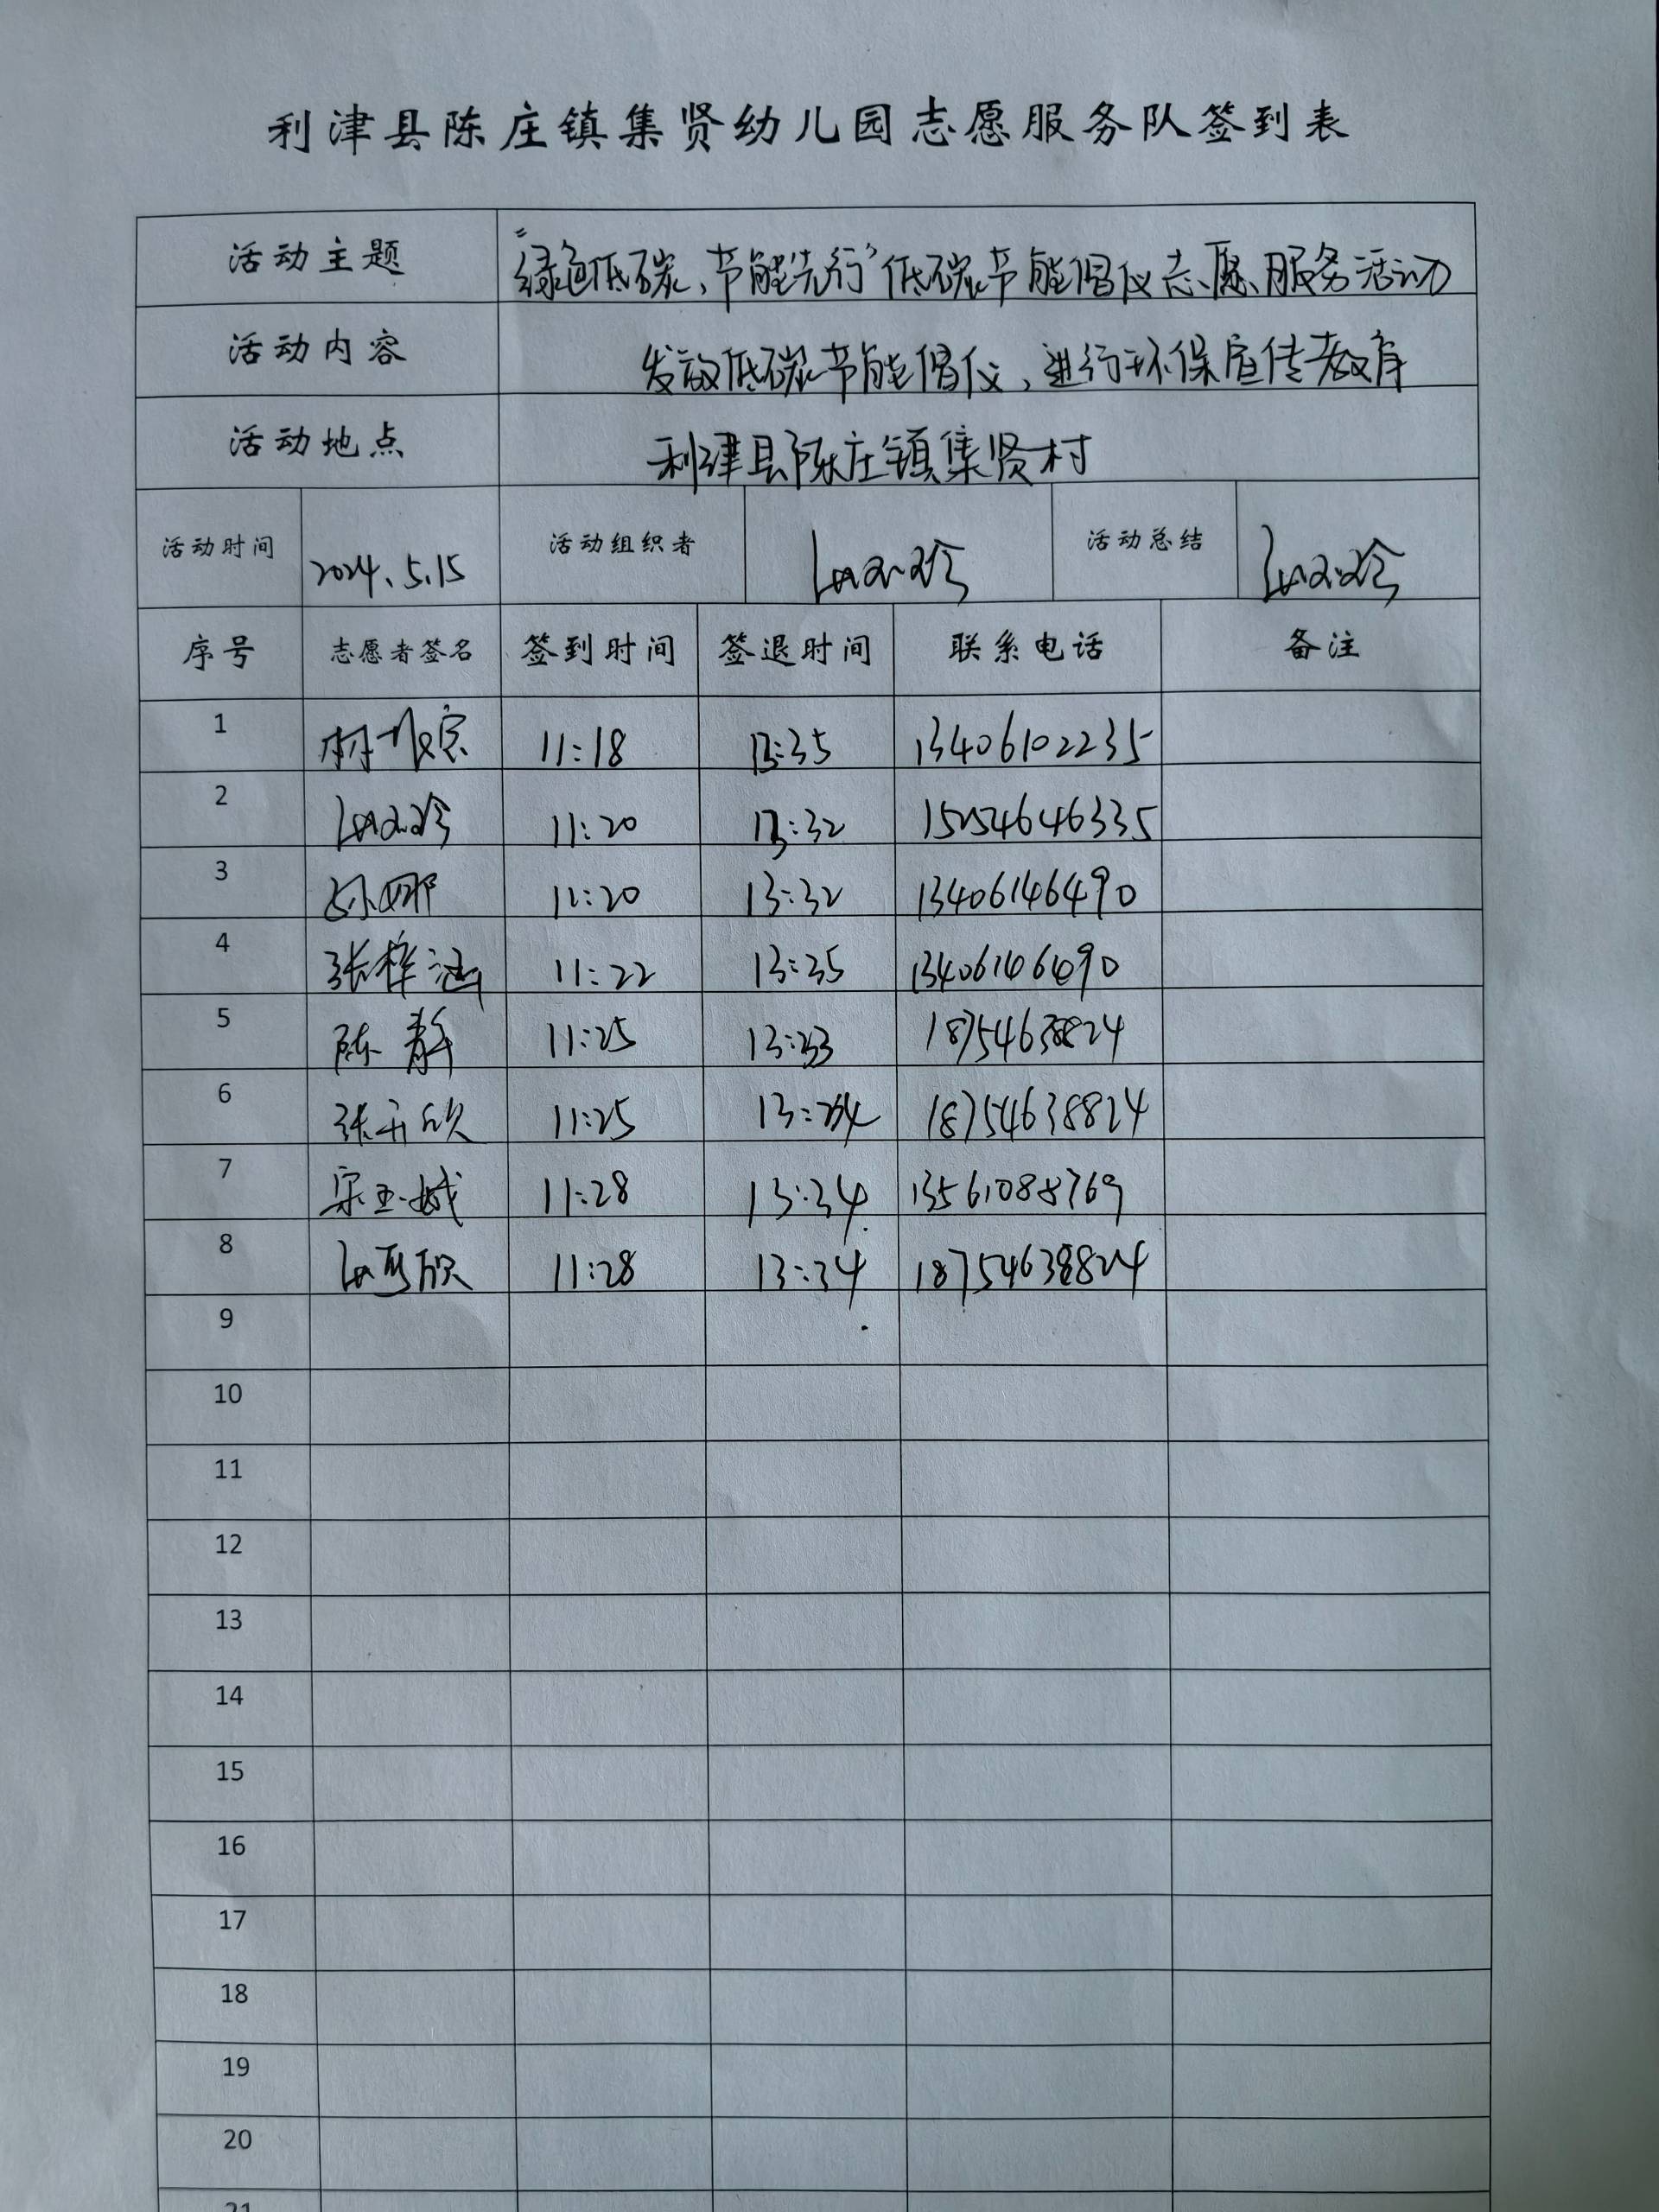 利津县陈庄镇集贤幼儿园志愿服务队签到表
活动主题 “绿色低碳、节能先行”低碳节能倡仪志愿服务活动
活动内容 发放低碳节能倡仪，进行环保宣传教育
活动地点 利津县陈庄镇集贤村
活动时间 2024.5.15 活动组织者 活动总结
序号 志愿者签名 签到时间 签退时间 联系电话 备注
1 11:18 13:35 13406102235
2 11:20 13:32 15254646335
3 孙娜 11:20 13:32 13406146490
4 张梓涵 11:22 13:35 13406146490
5 陈静 11:25 13:33 18754638824
6 11:25 13:34 18754638824
7 11:28 13:34 13561088769
8 11:28 13:34 18754638824
9
10
11
12
13
14
15
16
17
18
19
20
21